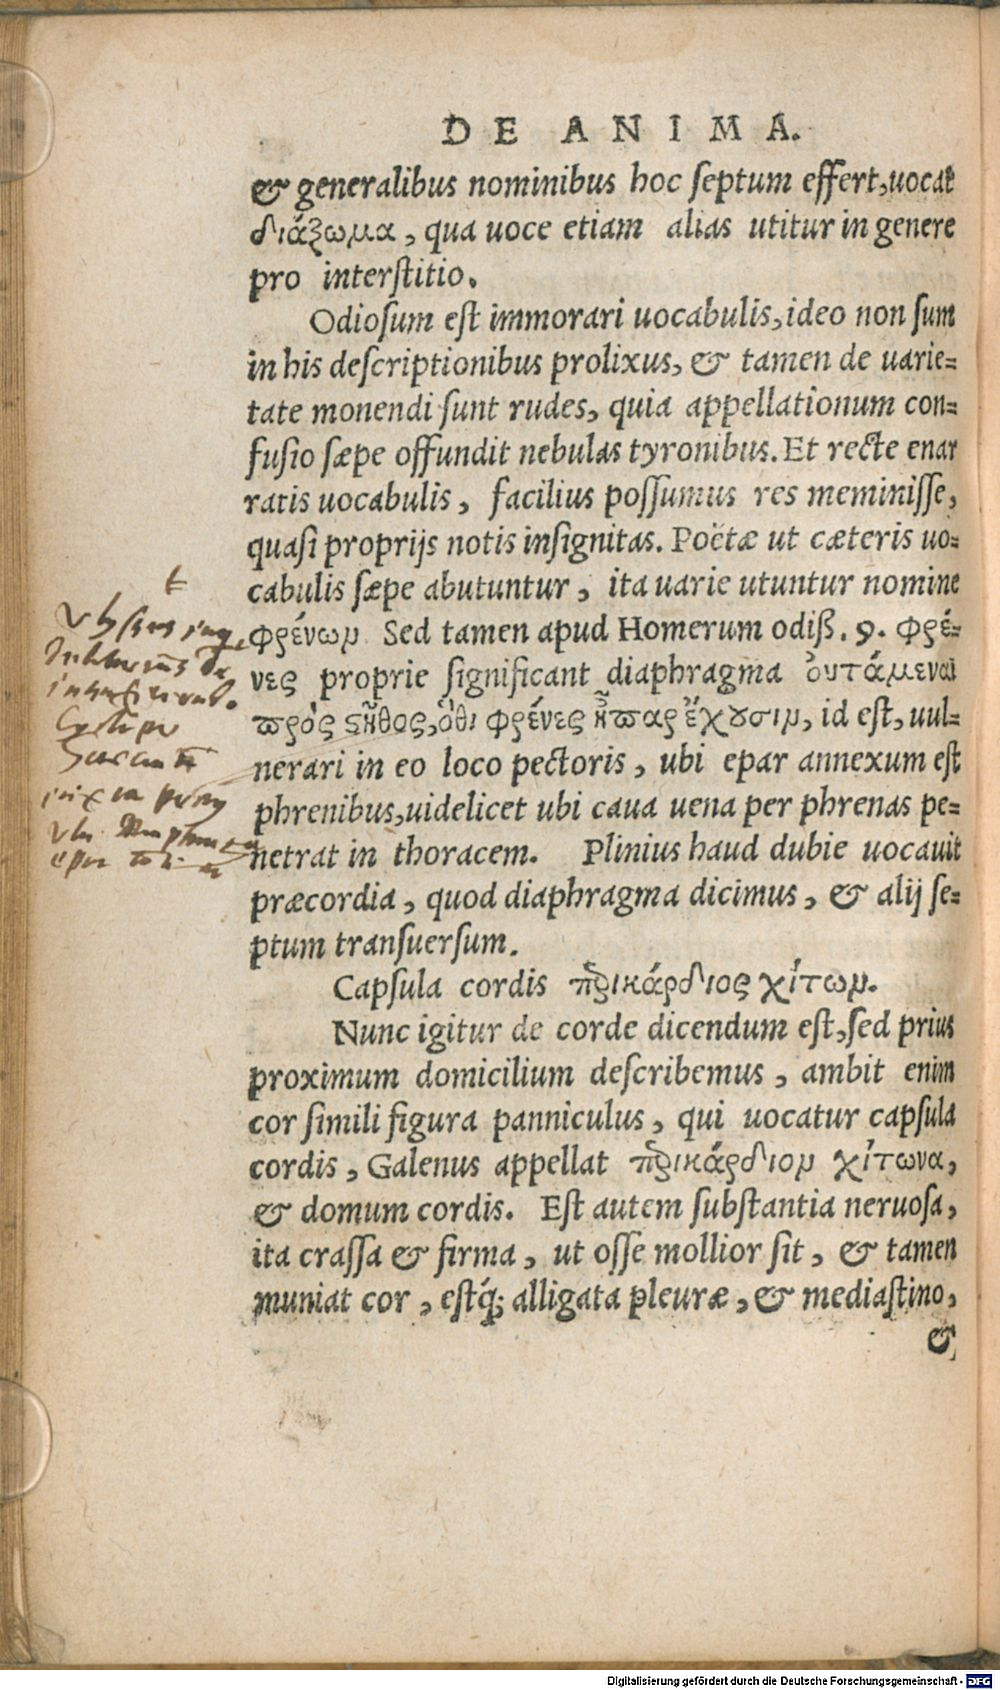 DE ANIMA.
& generalibus nominibus hoc ſeptum effert, uocat
διάζωμα, qua uoce etiam alias utitur in genere
pro interſtitio.
Odioſum eſt immorari uocabulis, ideo non ſum
in his deſcriptionibus prolixus, & tamen de uarie=
tate monendi ſunt rudes, quia appellationum con=
fuſio ſæpe offundit nebulas tyronibus. Et recte enar
ratis uocabulis, facilius poſſumus res meminiſſe,
quaſi proprijs notis inſignitas. Poëtæ ut cæteris uo=
cabulis ſæpe abutuntur, ita uarie utuntur nomine
φρένων Sed tamen apud Homerum odiß. 9. φρέ=
νες proprie ſignificant diaphragma οὐτάμεναι
πρὸς ςῆθος, ὅθι φρένες ἧπαρ ἔχουσιν, id eſt, uul=
nerari in eo loco pectoris, ubi epar annexum eſt
phrenibus, uidelicet ubi caua uena per phrenas pe=
netrat in thoracem. Plinius haud dubie uocauit
præcordia, quod diaphragma dicimus, & alij ſe=
ptum transuerſum.
Capſula cordis περικάρδιος χίτων.
Nunc igitur de corde dicendum eſt, ſed prius
proximum domicilium deſcribemus, ambit enim
cor ſimili figura panniculus, qui uocatur capſula
cordis, Galenus appellat περικάρδιον χίτωνα,
& domum cordis. Eſt autem ſubſtantia neruoſa,
ita craſſa & firma, ut oſſe mollior ſit, & tamen
muniat cor, eſtq́; alligata pleuræ, & mediaſtino,
&
Digitalisierung gefördert durch die Deutsche Forschungsgemeinschaft - DFG